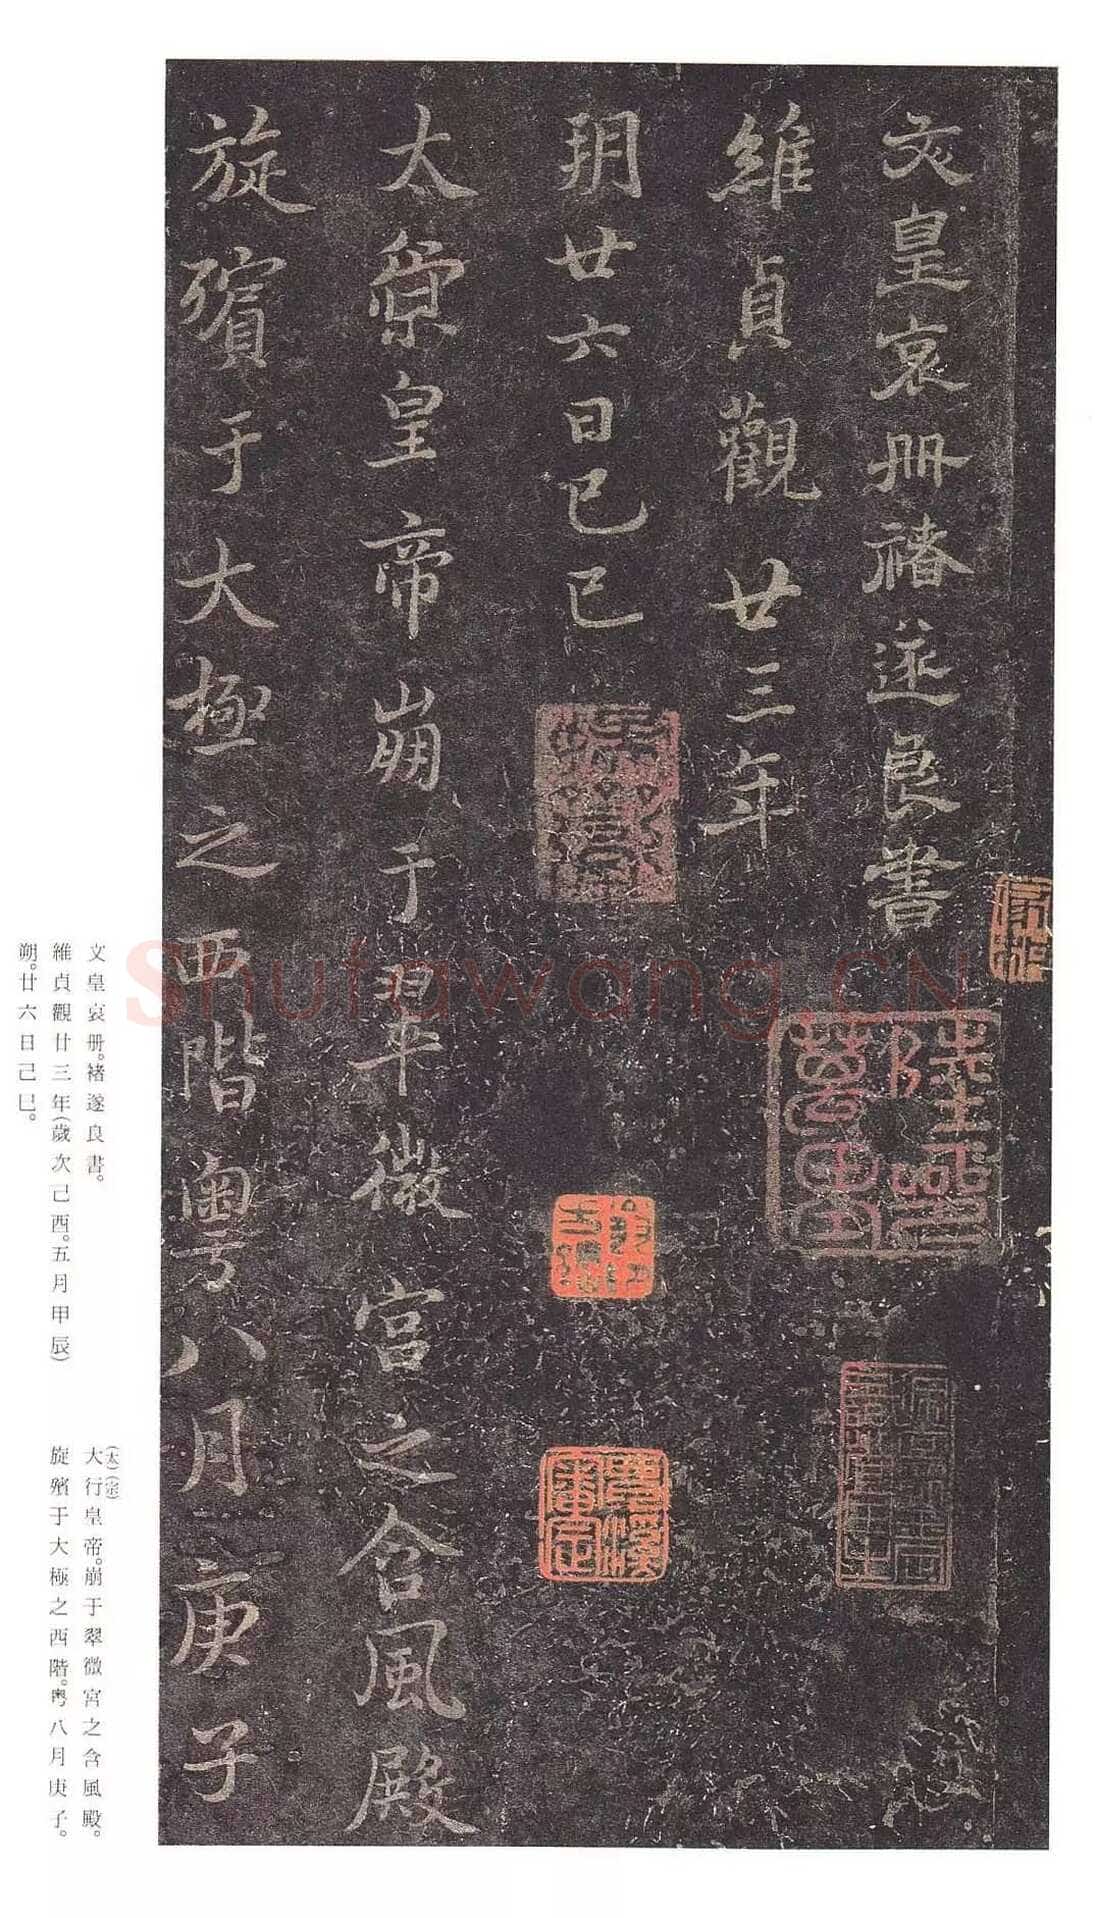 文皇哀冊褚遂良書
維貞觀廿三年
朔廿六日己巳
太宗皇帝崩于翠微宮之含風殿
旋殯于大極之西階粵八月庚子
文皇哀册。褚遂良書。
維貞觀廿三年(歲次己酉。五月甲辰)
朔。廿六日己巳。
(太)(宗)
大行皇帝。崩于翠微宮之含風殿。
旋殯于大極之西階。粤八月庚子。
Shufawang.CN